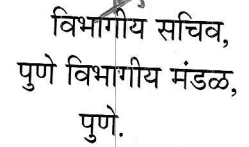 विभागीय सचिव,
पुणे विभागीय मंडळ,
पुणे.